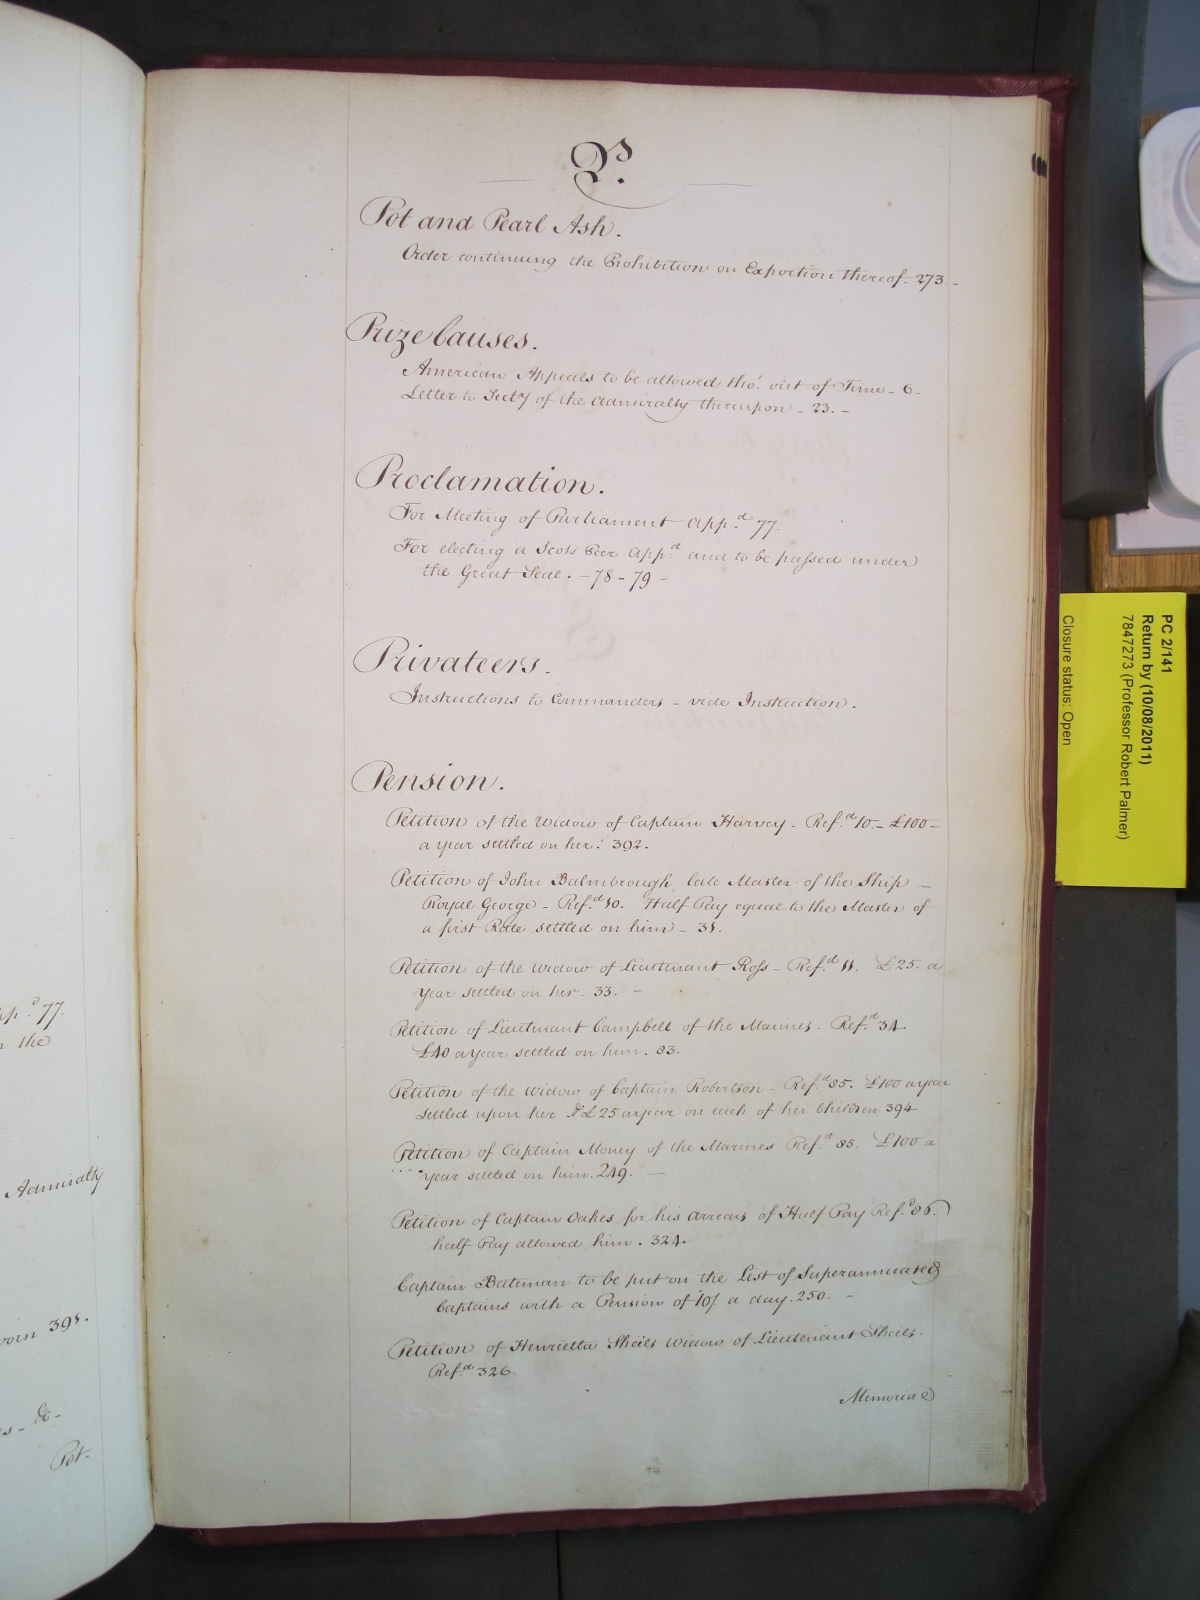 P.
Pot and Pearl Ash.
Order continuing the Prohibition on Exportion thereof. 273. -
Prize Causes.
American Appeals to be allowed tho' out of Time - 6.
Letter to Secty of the Admiralty thereupon - 23. -
Proclamation.
For Meeting of Parliament App.d 77.
For electing a Scots Peer App.d and to be passed under
the Great Seal. - 78 - 79 -
Privateers.
Instructions to Commanders - vide Instruction.
Pension.
Petition of the Widow of Captain Harvey - Ref.d 10. - £100 -
a year settled on her: 392.
Petition of John Balmbrough, late Master of the Ship -
Royal George - Ref.d 10. Half Pay equal to the Master of
a first Rate settled on him - 31.
Petition of the Widow of Lieutenant Ross - Ref.d 11. £25. a
Year settled on her. 33. -
Petition of Lieutenant Campbell of the Marines - Ref.d 34
£40 a year settled on him. 83.
Petition of the Widow of Captain Robertson - Ref.d 85. £100 a year
settled upon her & £25 a year on each of her Children 394
Petition of Captain Money of the Marines Ref.d 85. £100 a
year settled on him. 249. -
Petition of Captain Oakes for his Arrears of Half Pay Ref.d 86.
half Pay allowed him. 324.
Captain Bateman to be put on the List of Superannuated
Captains with a Pension of 10/. a day. 250. -
Petition of Henrietta Sheils Widow of Lieutenant Sheils.
Ref.d 326.
Memorial
77.
the
Admiralty
391.
&c -
Pot.
PC 2/141
Return by (10/08/2011)
7847273 (Professor Robert Palmer)
Closure status: Open